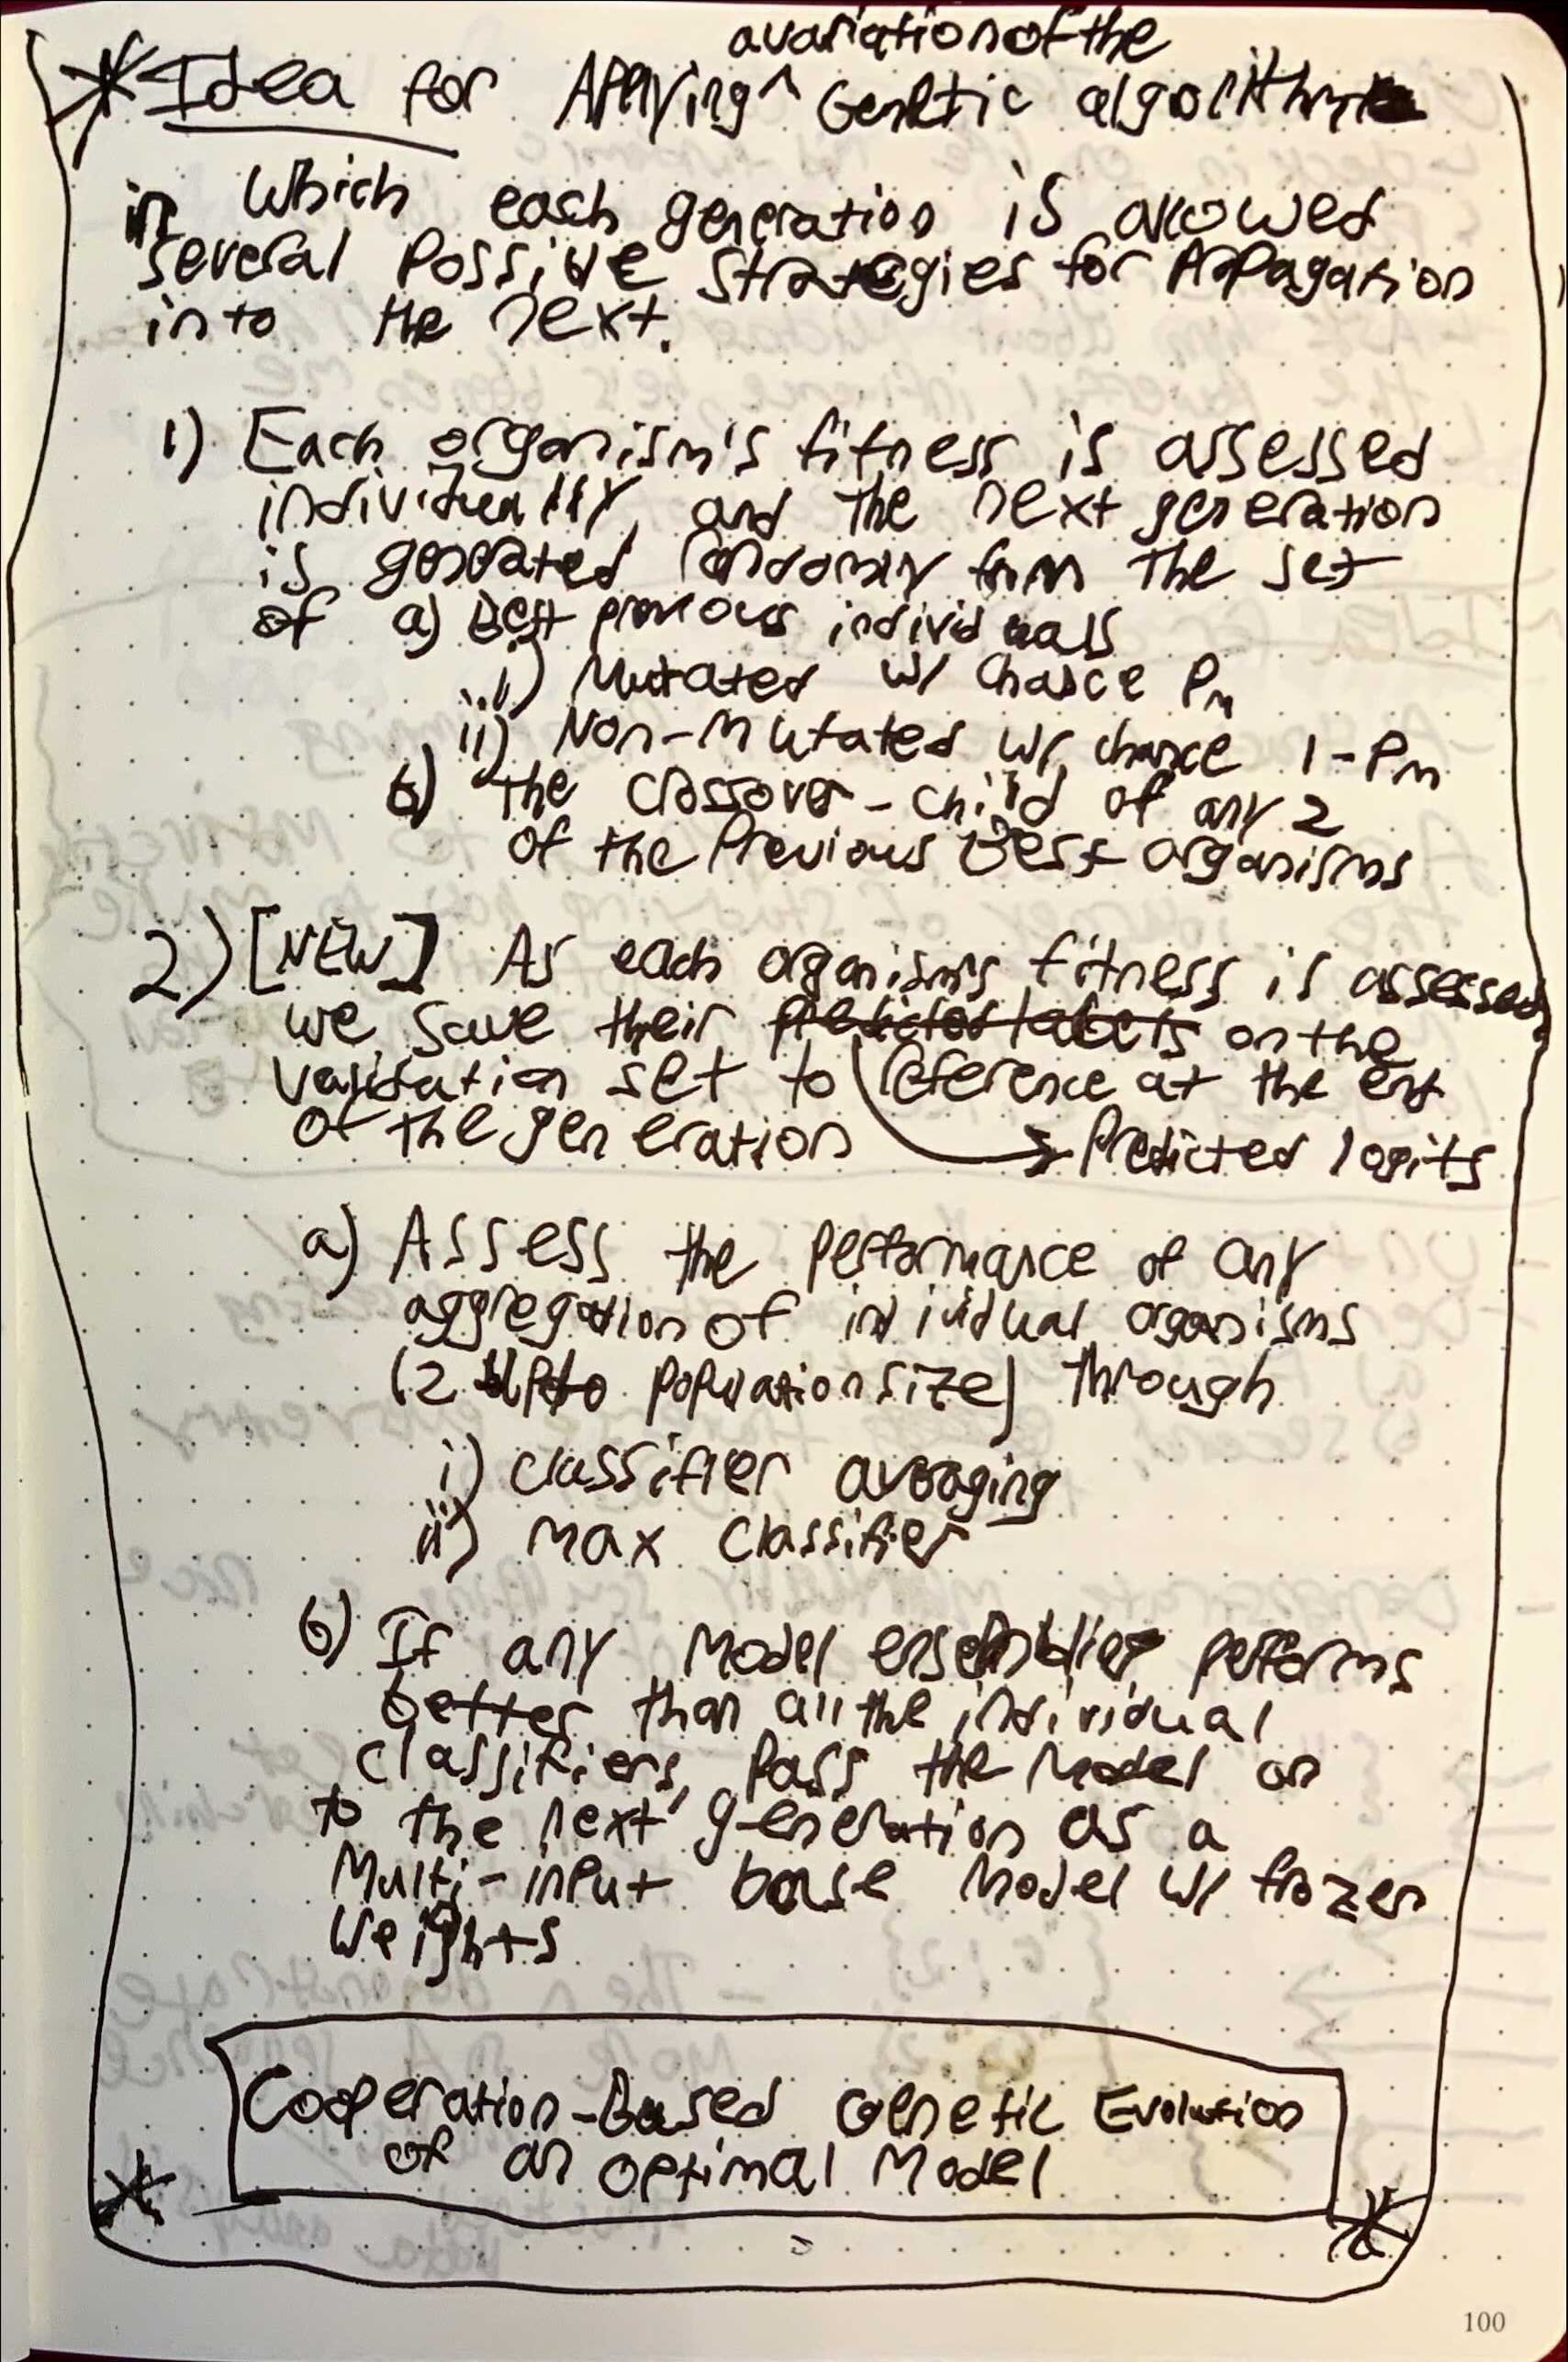 a variation of the
* Idea for Applying ^ Genetic algorithm
in which each generation is allowed
several possible strategies for propagation
into the next.
1) Each organism's fitness is assessed
individually, and the next generation
is generated randomly from the set
of a) Best previous individuals
i) Mutated w/ chance Pm
ii) Non-mutated w/ chance 1-Pm
b) the crossover-child of any 2
of the previous best organisms
2) [NEW] As each organism's fitness is assessed,
we save their predicted labels on the
validation set to reference at the end
of the generation → Predicted logits
a) Assess the performance of any
aggregation of individual organisms
(2 up to population size) through
i) classifier averaging
ii) max classifier
b) If any model ensemble performs
better than all the individual
classifiers, pass the model on
to the next generation as a
Multi-input base model w/ frozen
weights
Cooperation-Based Genetic Evolution
of an optimal Model
*
*
100